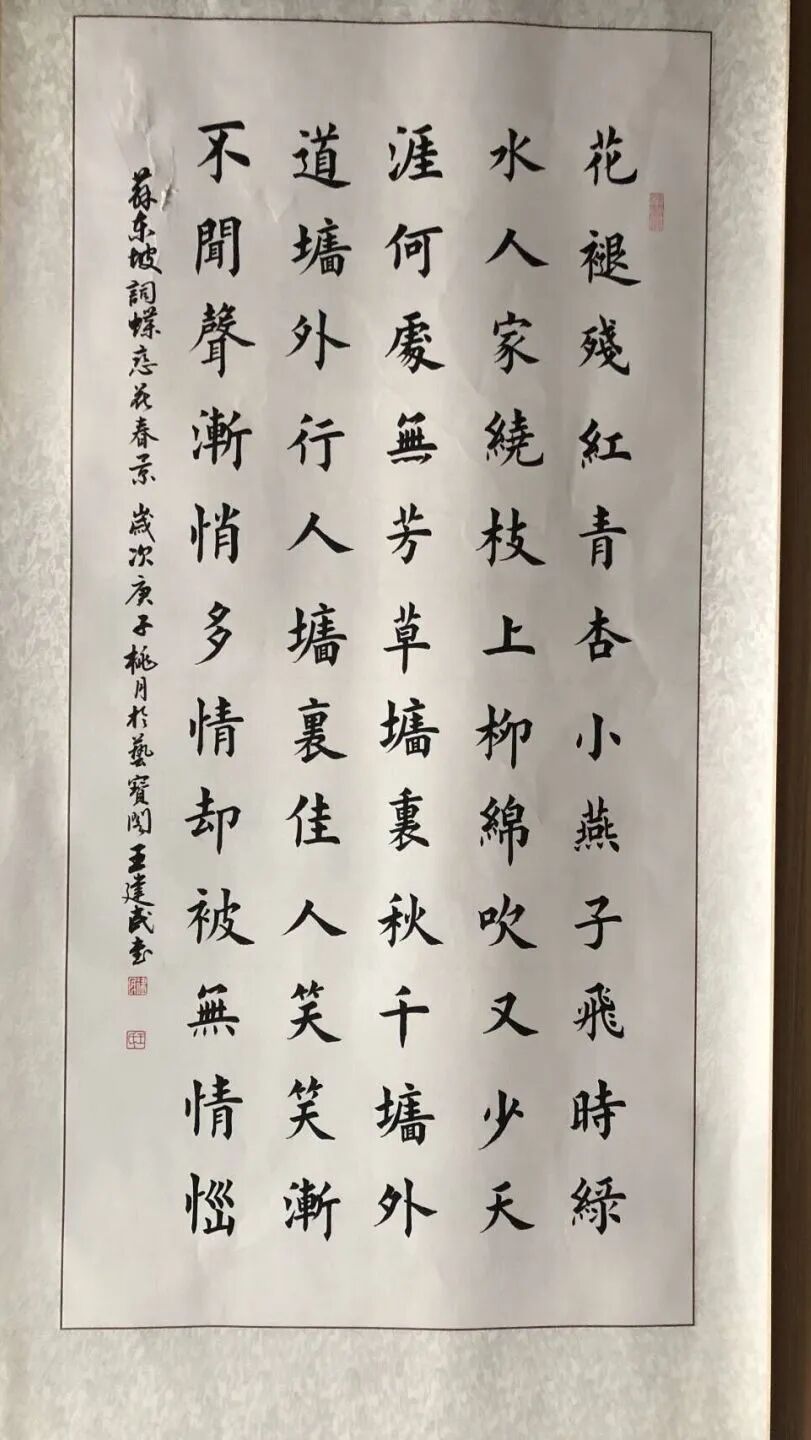 花褪殘紅青杏小燕子飛時緑
水人家繞枝上柳綿吹又少天
涯何處無芳草墻裏秋千墻外
道墻外行人墻裏佳人笑笑漸
不聞聲漸悄多情却被無情惱
蘇東坡詞蝶戀花春景 歲次庚子桃月於藝寶閣王建民書